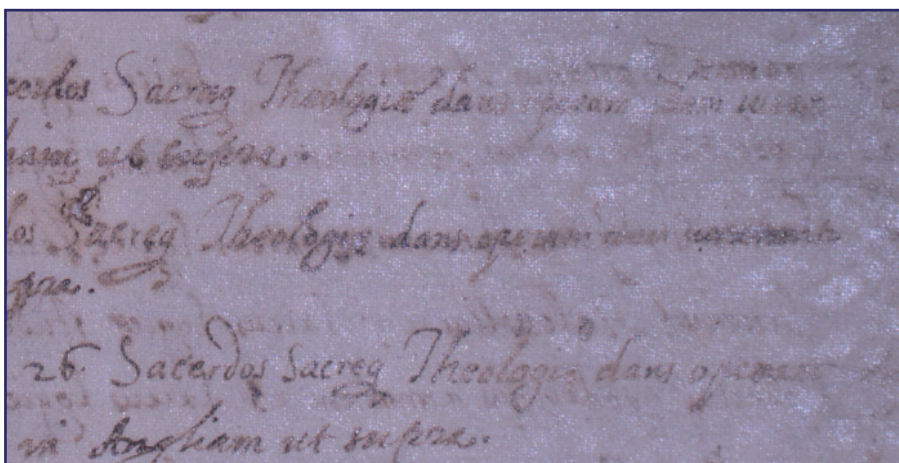 cerdos Sacreę Theologiæ dans operam idem
liam ut supra.
dos Sacreę Theologię dans operam
pra.
26. Sacerdos Sacreę Theologię dans operam
in Angliam ut supra.